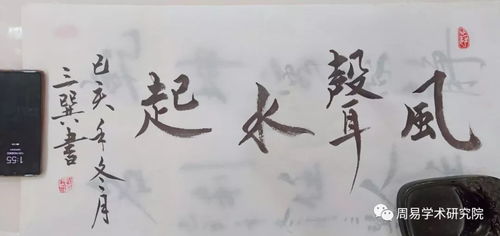 風聲水起
己亥年冬月
三巽書
1:55
周易学术研究院